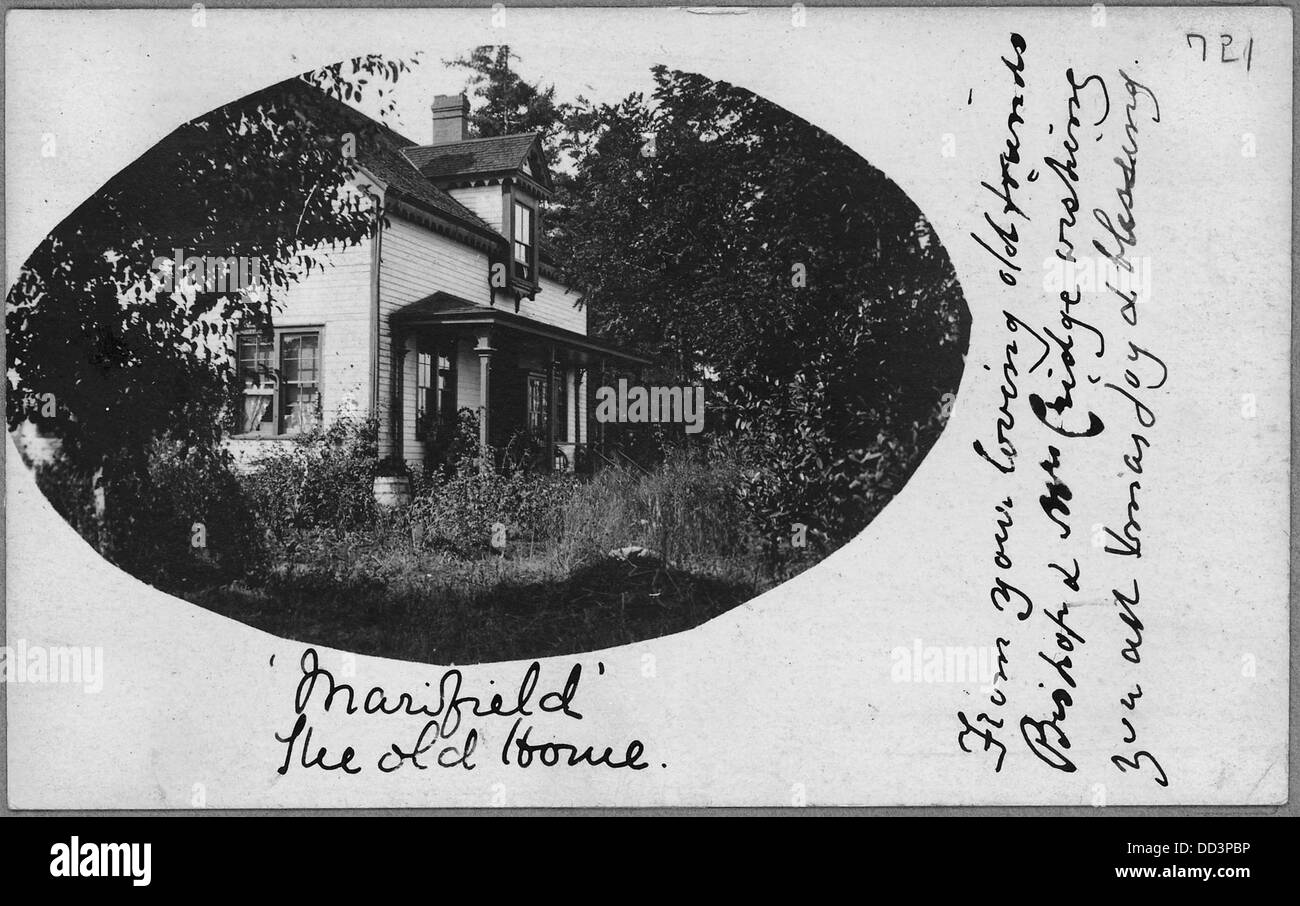 721
'Marifield'
The old Home.
From your loving old friends
Bishop & Mrs Cridge wishing
you all Xmas joy & blessing.
alamy
Image ID: DD3PBP
www.alamy.com